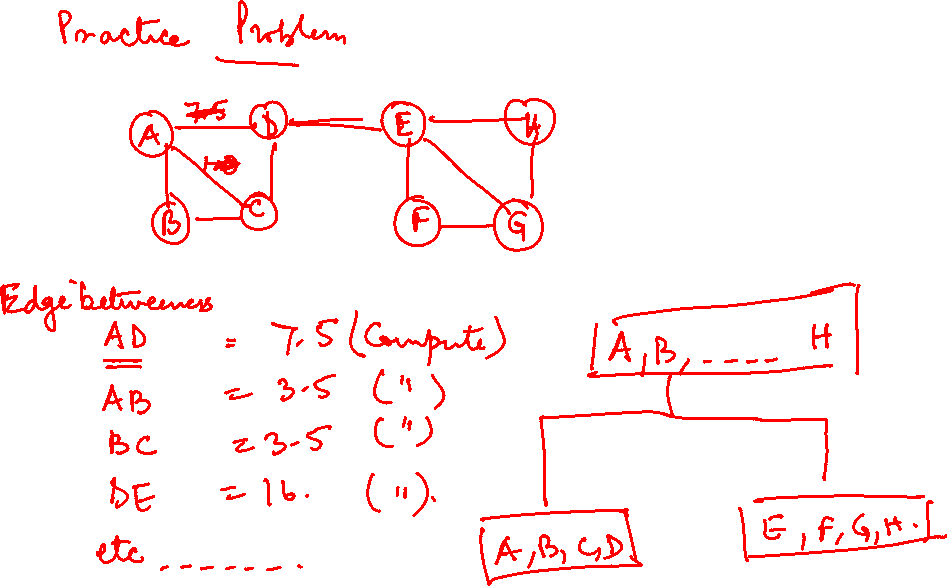 Practice Problem
7.5
A D E H
1.0
B C F G
Edge betweeness
AD = 7.5 (Compute)
AB = 3.5 (")
BC = 3.5 (")
DE = 16. (").
etc -------.
A, B, ---- H
A, B, C, D
E, F, G, H.